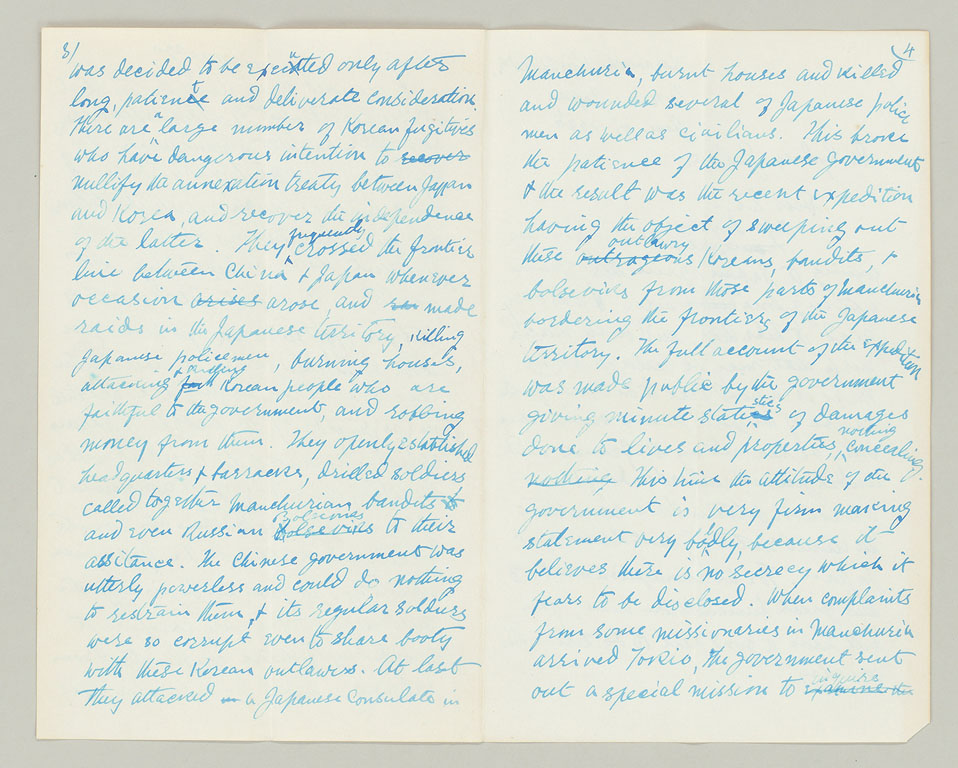 3/
was decided to be executed only after
long, patient and deliberate consideration.
There are a large number of Korean fugitives
who have dangerous intention to recover
nullify the annexation treaty between Japan
and Korea, and recover the independence
of the latter. They frequently crossed the frontier
line between China & Japan whenever
occasion arises arose, and ran made
raids in the Japanese territory, killing
Japanese policemen, burning houses,
attacking & Korean people who are
faithful to the government, and robbing
money from them. They openly established
headquarters & barracks, drilled soldiers
called together Manchurian bandits
and even Russian Bolsevikes Bolsevikes to their
assitance. The Chinese government was
utterly powerless and could do nothing
to restrain them, & its regular soldiers
were so corrupt even to share booty
with these Korean outlaws. At last
they attacked a Japanese consulate in
4
Manchuria, burnt houses and killed
and wounded several of Japanese police
men as well as civilians. This broke
the patience of the Japanese government
& the result was the recent expedition
having the object of sweeping out
these outlawry outrageous Koreans, bandits, &
bolsevikes from those parts of Manchuria
bordering the frontiers of the Japanese
territory. The full account of the expedition
was made public by the government
giving minute statistics of damages
done to lives and properties, nothing concealing.
nothing This time the attitude of the
government is very firm making
statement very boldly, because it
believes there is no secrecy which it
fears to be disclosed. When complaints
from some missionaries in Manchuria
arrived Tokio, the government sent
out a special mission to inquire examine the